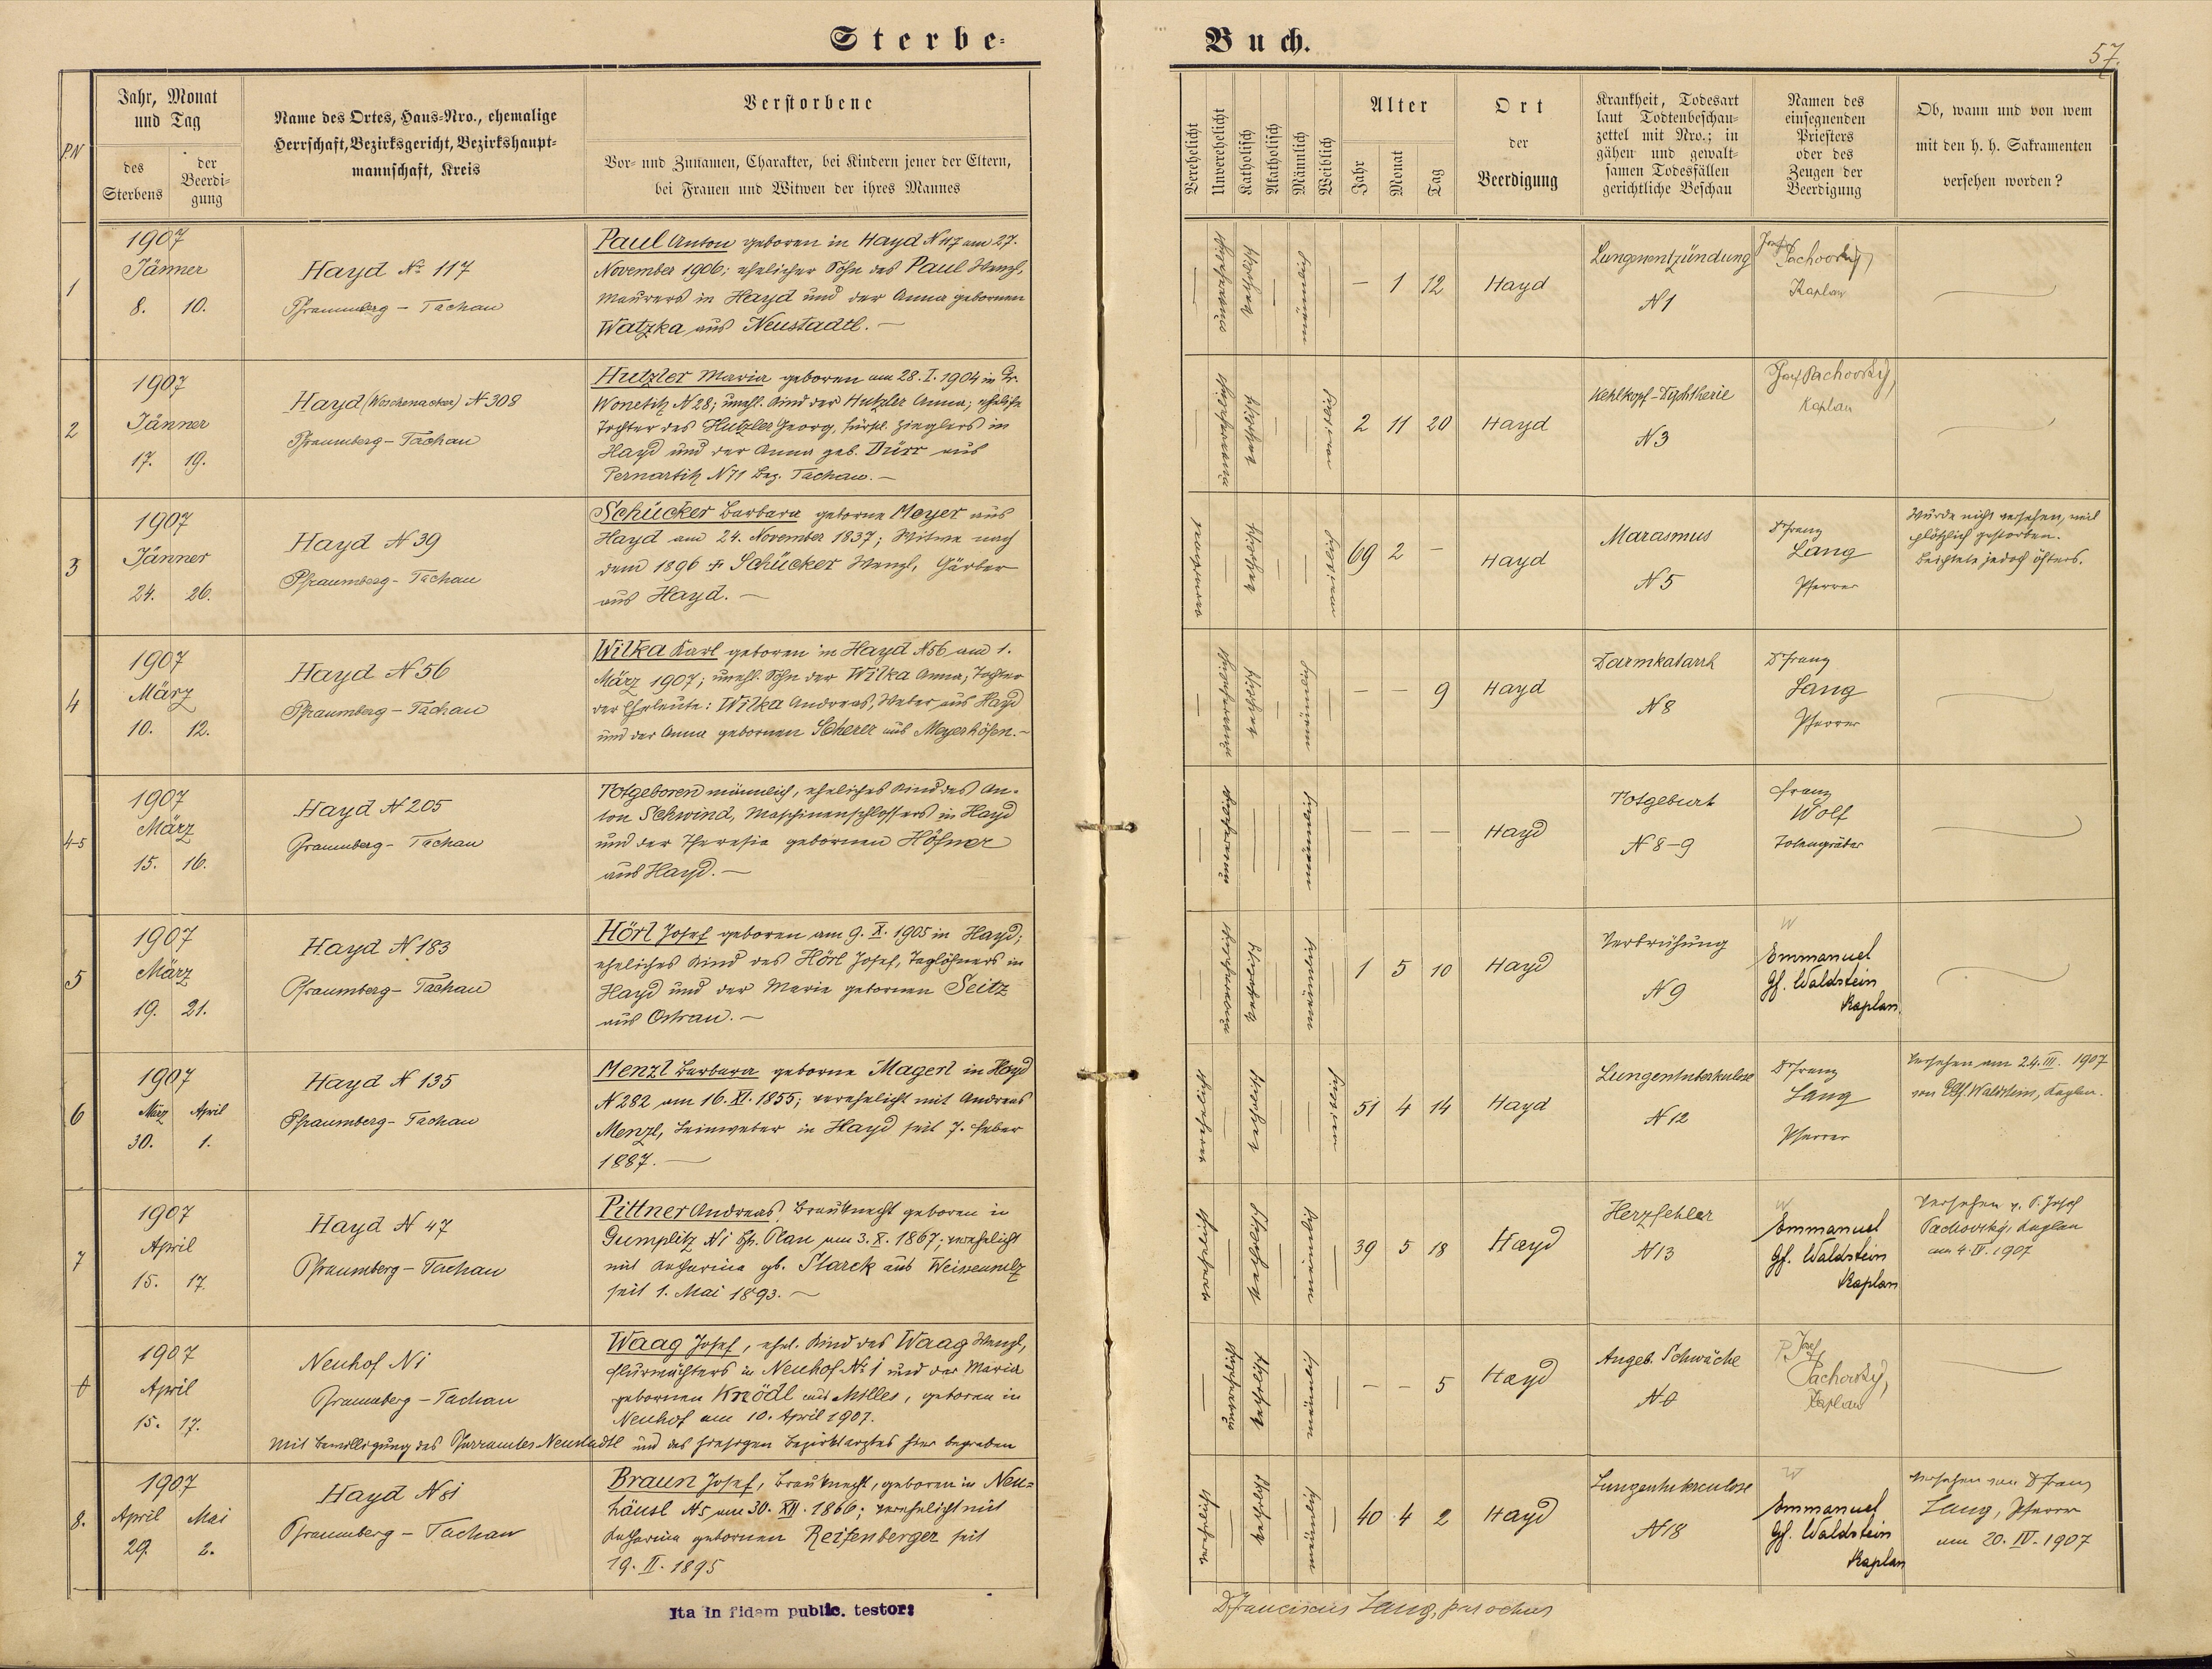 Sterbe-
Buch.
57.
P.N
Jahr, Monat
und Tag
des
Sterbens
der
Beerdi-
gung
Name des Ortes, Haus-Nro., ehemalige
Herrschaft, Bezirksgericht, Bezirkshaupt-
mannschaft, Kreis
Verstorbene
Vor- und Zunamen, Charakter, bei Kindern jener der Eltern,
bei Frauen und Witwen der ihres Mannes
Verehelicht
Unverehelicht
Katholisch
Akatholisch
Männlich
Weiblich
Alter
Jahr
Monat
Tag
Ort
der
Beerdigung
Krankheit, Todesart
laut Todtenbeschau-
zettel mit Nro.; in
gähen und gewalt-
samen Todesfällen
gerichtliche Beschau
Namen des
einsegnenden
Priesters
oder des
Zeugen der
Beerdigung
Ob, wann und von wem
mit den h. h. Sakramenten
versehen worden?
1
1907
Jänner
8. 10.
Hayd No 117
Pfraumberg - Tachau
Paul Anton geboren in Hayd N 117 am 27.
November 1906; ehelicher Sohn des Paul Wenzl,
Maurers in Hayd und der Anna gebornen
Watzka aus Neustadtl. —
unverehelicht
katholisch
männlich
— 1 12
Hayd
Lungenentzündung
N 1
Josef
Pachovsky,
Kaplan
2
1907
Jänner
17. 19.
Hayd (Woschenacker) N 308
Pfraumberg - Tachau
Hutzler Maria geboren am 28. I. 1904 in Gr.
Wonetitz N 28; unehl. Kind der Hutzler Anna; eheliche
Tochter des Hutzler Georg, fürstl. Zieglers in
Hayd und der Anna geb. Dürr aus
Pernartitz N 71 Bez. Tachau. —
unverehelicht
katholisch
weiblich
2 11 20
Hayd
Kehlkopf-Diphtherie
N 3
Josef Pachovsky,
Kaplan
3
1907
Jänner
24. 26.
Hayd N 39
Pfraumberg - Tachau
Schücker Barbara geborne Meyer aus
Hayd am 24. November 1837; Witwe nach
dem 1896 + Schücker Wenzl, Gärber
aus Hayd. —
verwitwet
katholisch
weiblich
69 2 -
Hayd
Marasmus
N 5
D Franz
Lang
Pfarrer
Wurde nicht versehen, weil
plötzlich gestorben.
Beichtete jedoch öfters.
4
1907
März
10. 12.
Hayd N 56
Pfraumberg - Tachau
Wilka Karl geboren in Hayd N 56 am 1.
März 1907; unehl. Sohn der Wilka Anna, Tochter
der Eheleute: Wilka Andreas, Weber aus Hayd
und der Anna gebornen Scherer aus Meyerhöfen. —
unverehelicht
katholisch
männlich
— — 9
Hayd
Darmkatarrh
N 8
D Franz
Lang
Pfarrer
4-5
1907
März
15. 16.
Hayd N 205
Pfraumberg - Tachau
Totgeboren männlich, eheliches Kind des An-
ton Schwind, Maschinenschlossers in Hayd
und der Theresia gebornen Höfner
aus Hayd. —
unverehelicht
männlich
— — —
Hayd
Totgeburt
N 8-9
Franz
Wolf
Totengräber
5
1907
März
19. 21.
Hayd N 183
Pfraumberg - Tachau
Hörl Josef geboren am 9. X. 1905 in Hayd;
eheliches Kind des Hörl Josef, Taglöhners in
Hayd und der Maria gebornen Seitz
aus Ostrau. —
unverehelicht
katholisch
männlich
1 5 10
Hayd
Verbrühung
N 9
W
Emmanuel
Gf. Waldstein
Kaplan.
6
1907
März April
30. 1.
Hayd N 135
Pfraumberg - Tachau
Menzl Barbara geborne Magerl in Hayd
N 282 am 16. XI. 1855; verehelicht mit Andreas
Menzl, Leinweber in Hayd seit 7. Feber
1887. —
verehelicht
katholisch
weiblich
51 4 14
Hayd
Lungentuberkulose
N 12
D Franz
Lang
Pfarrer
Versehen am 24. III. 1907
von Gf. Waldstein, Kaplan.
7
1907
April
15. 17.
Hayd N 47
Pfraumberg - Tachau
Pittner Andreas, Brauknecht geboren in
Gumplitz N 1 Bh. Plan, am 3. X. 1867; verehelicht
mit Katharina gb. Starck aus
seit 1. Mai 1893. —
verehelicht
katholisch
männlich
39 5 18
Hayd
Herzfehler
N 13
W
Emmanuel
Gf. Waldstein
Kaplan
Versehen v. P. Josef
Pachovsky, Kaplan
am 4. IV. 1907
1907
April
15. 17.
Neuhof N 1
Pfraumberg - Tachau
Waag Josef, ehel. Kind des Waag Wenzl,
Flurwächters in Neuhof No 1 und der Maria
gebornen Knödl aus Milles, geboren in
Neuhof am 10. April 1907.
Mit Bewilligung des Pfarramtes Neustadtl und des hiesigen Bezirksarztes hier begraben
unverehelicht
katholisch
männlich
— — 5
Hayd
Angeb. Schwäche
N 0
P. Josef
Pachovsky,
Kaplan
8.
1907
April Mai
29. 2.
Hayd N 81
Pfraumberg - Tachau
Braun Josef, Brauknecht, geboren in Neu-
häusl N 5 am 30. XII. 1866; verehelicht mit
Katharina gebornen Reifenberger seit
19. II. 1895
verehelicht
katholisch
männlich
40 4 2
Hayd
Lungentuberculose
N 18
W
Emmanuel
Gf. Waldstein
Kaplan
Versehen von D Franz
Lang, Pfarrer
am 20. IV. 1907
Ita in fidem public. testor:
D Franciscus Lang, parochus